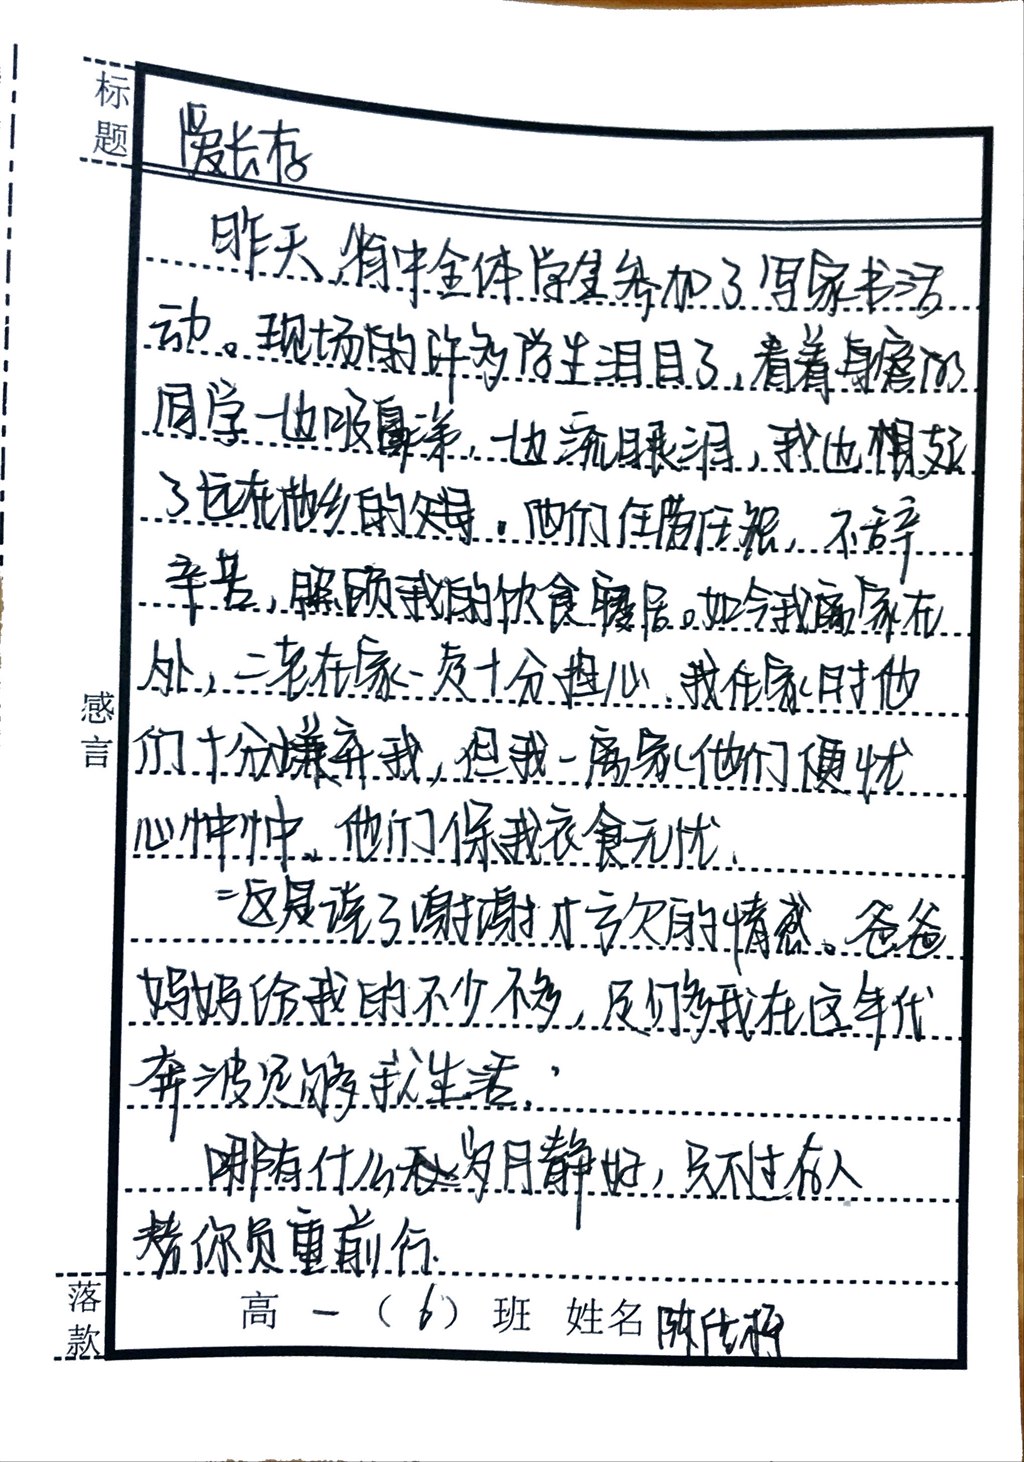 标题
爱长存
昨天,育中全体学生参加了写家书活
动。现场的许多学生泪目了,看着身旁的
同学一边吸鼻涕,一边流眼泪,我也想起
了远在他乡的父母。他们任劳任怨,不辞
辛苦,照顾我的饮食寝居。如今我离家在
外,二老在家一定十分担心.我在家时他
们十分嫌弃我,但我一离家他们便忧
心忡忡。他们保我衣食无忧.
这是说了谢谢才亏欠的情感。爸爸
妈妈给我的不少不多,足们够我在这年代
奔波足够我生活.
哪有什么岁月静好,只不过有人
替你负重前行.
感言
落款
高一(6)班 姓名 陈